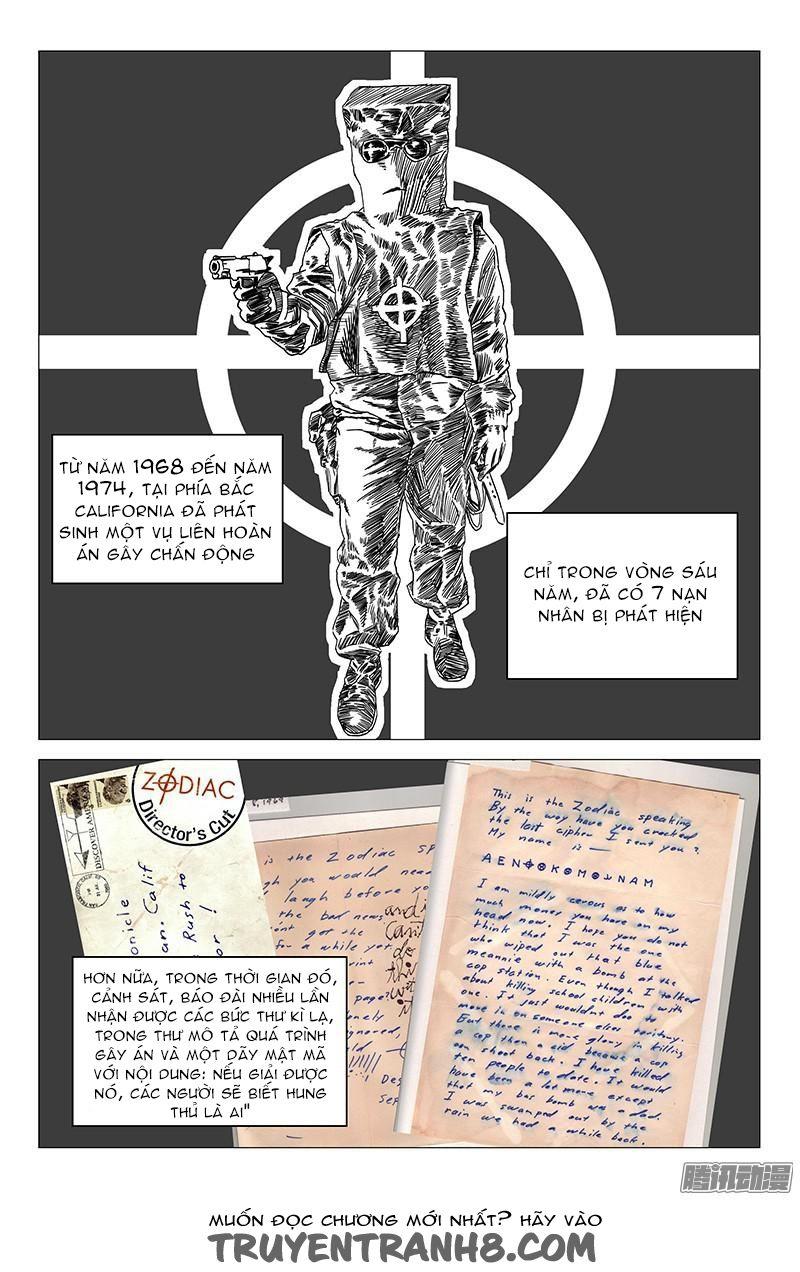 TỪ NĂM 1968 ĐẾN NĂM
1974, TẠI PHÍA BẮC
CALIFORNIA ĐÃ PHÁT
SINH MỘT VỤ LIÊN HOÀN
ÁN GÂY CHẤN ĐỘNG
CHỈ TRONG VÒNG SÁU
NĂM, ĐÃ CÓ 7 NẠN
NHÂN BỊ PHÁT HIỆN
ZODIAC
Director's Cut
DISCOVER AMERICA
onicle
an. Calif
Rush to
or!
is the Zodiac sp
you would need
laugh before yo
the bad news
get the
for a while yet
and i
cant
do
thi
with
page?
onely
ignored,
Des
Sep
This is the Zodiac speaking
By the way have you cracked
the last cipher I sent you?
My name is —
A E N ⌖ ⊕ K ⊕ M ⊕ ⅃ N A M
I am mildly cerous as to how
much money you have on my
head now. I hope you do not
think that I was the one
who wiped out that blue
meannie with a bomb at the
cop station. Even though I talked
about killing school children with
one. It just wouldnt doo to
move in on someone elses teritory.
But there is more glory in killing
a cop then a cid because a cop
can shoot back. I have killed
ten people to date. It would
have been a lot more except
that my bus bomb was a dud.
I was swamped out by the
rain we had a while back.
HƠN NỮA, TRONG THỜI GIAN ĐÓ,
CẢNH SÁT, BÁO ĐÀI NHIỀU LẦN
NHẬN ĐƯỢC CÁC BỨC THƯ KÌ LẠ,
TRONG THƯ MÔ TẢ QUÁ TRÌNH
GÂY ÁN VÀ MỘT DÃY MẬT MÃ
VỚI NỘI DUNG: NẾU GIẢI ĐƯỢC
NÓ, CÁC NGƯỜI SẼ BIẾT HUNG
THỦ LÀ AI"
腾讯动漫
MUỐN ĐỌC CHƯƠNG MỚI NHẤT? HÃY VÀO
TRUYENTRANH8.COM